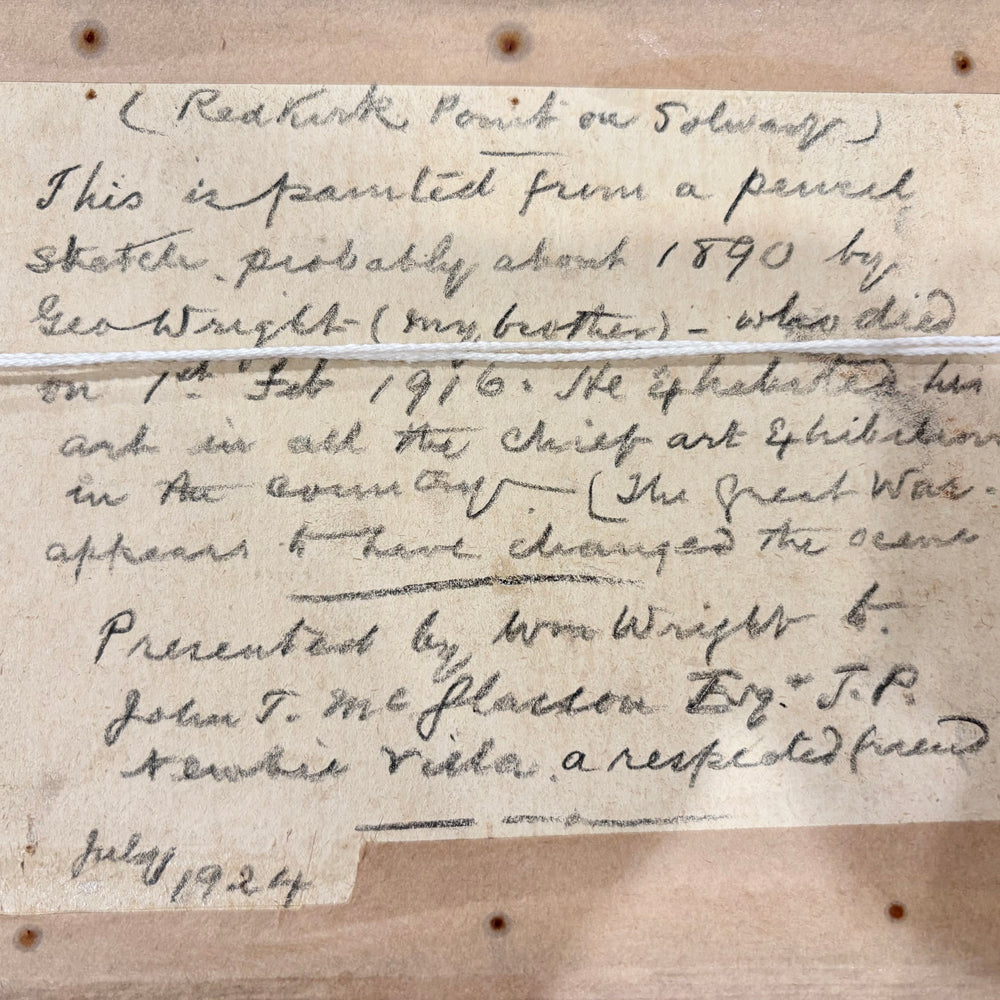 (RedKirk Point on Solway)
This is painted from a pencil
sketch, probably about 1890 by
Geo Wright (my brother) - who died
on 1st Feb 1916. He Exhibited his
art in all the chief art Exhibitions
in the country. (The great War.
appears to have changed the scene
Presented by Wm Wright to.
John T. Mc Glasson Esqr. J.P.
Newbie Villa. a respected friend
July 1924